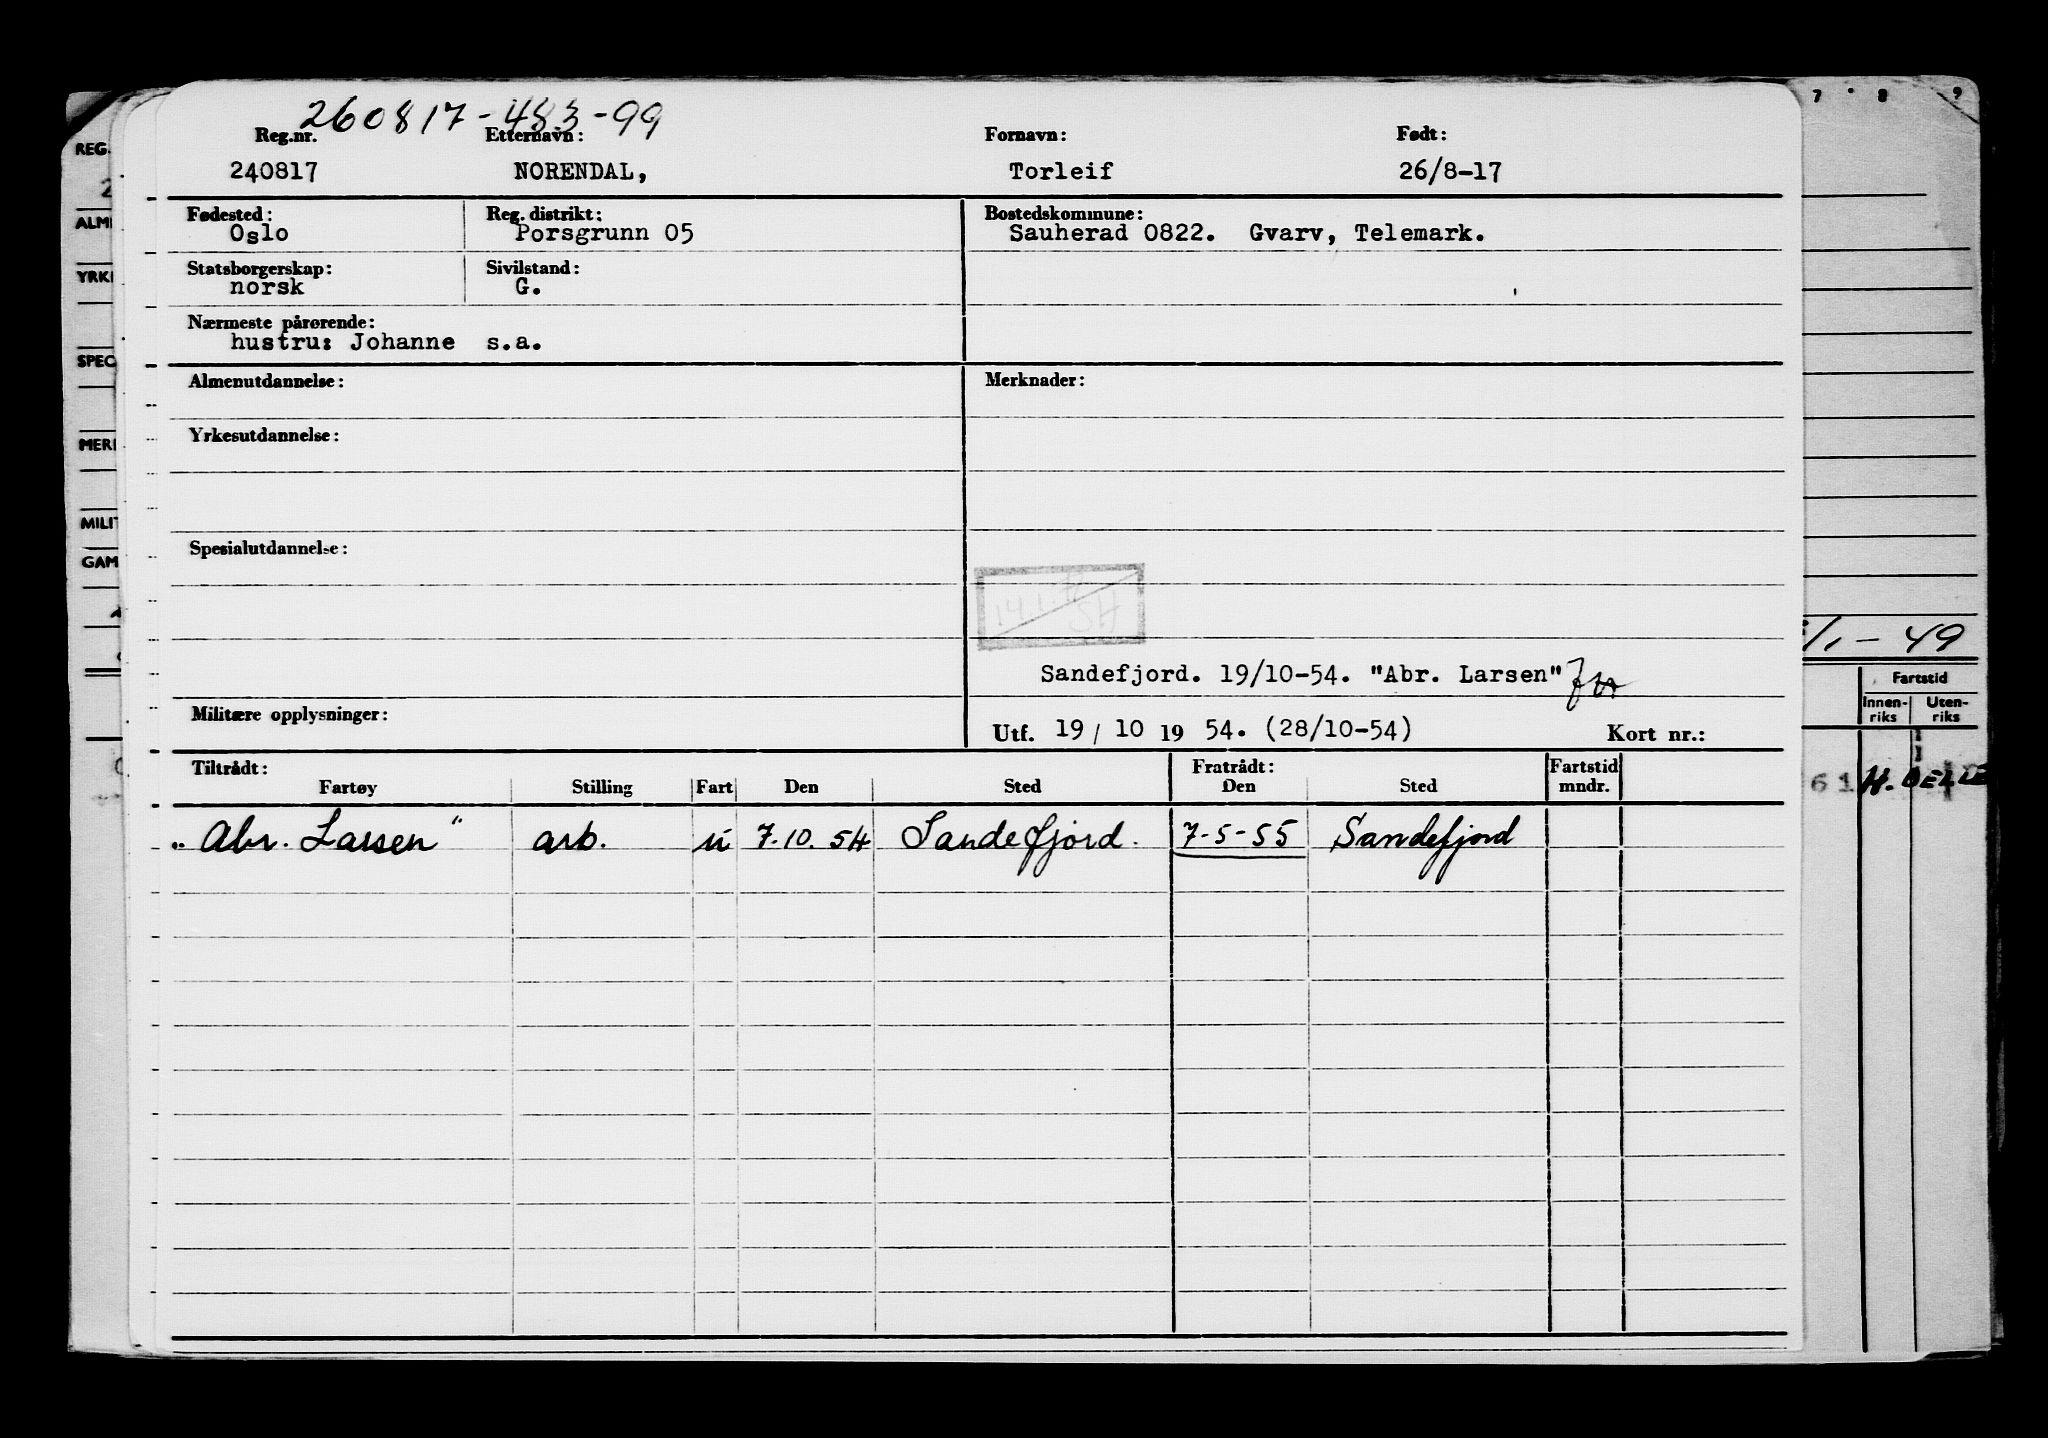 260817-483-99
Reg.nr. Etternavn: Fornavn: Født:
240817 NORENDAL, Torleif 26/8-17
Fødested: Reg. distrikt: Bostedskommune:
Oslo Porsgrunn 05 Sauherad 0822. Gvarv, Telemark.
Statsborgerskap: Sivilstand:
norsk G.
Nærmeste pårørende:
hustru: Johanne s.a.
Almenutdannelse: Merknader:
Yrkesutdannelse:
Spesialutdannelse:
Sandefjord. 19/10-54. "Abr. Larsen"
Militære opplysninger:
Utf. 19 / 10 19 54. (28/10-54) Kort nr.:
Tiltrådt: Fratrådt: Fartstid
Fartøy Stilling Fart Den Sted Den Sted mndr.
"Abr. Larsen" arb. u 7.10.54 Sandefjord. 7-5-55 Sandefjord
REG.
YRK
SPEC
MILIT
GAM
7 8 9
/1-49
Fartstid
Innen-
riks
Uten-
riks
61